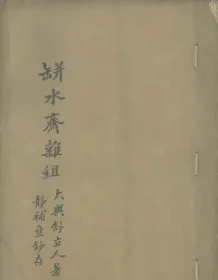 缾水齋雜組
大興舒立人著
靜補盦鈔存